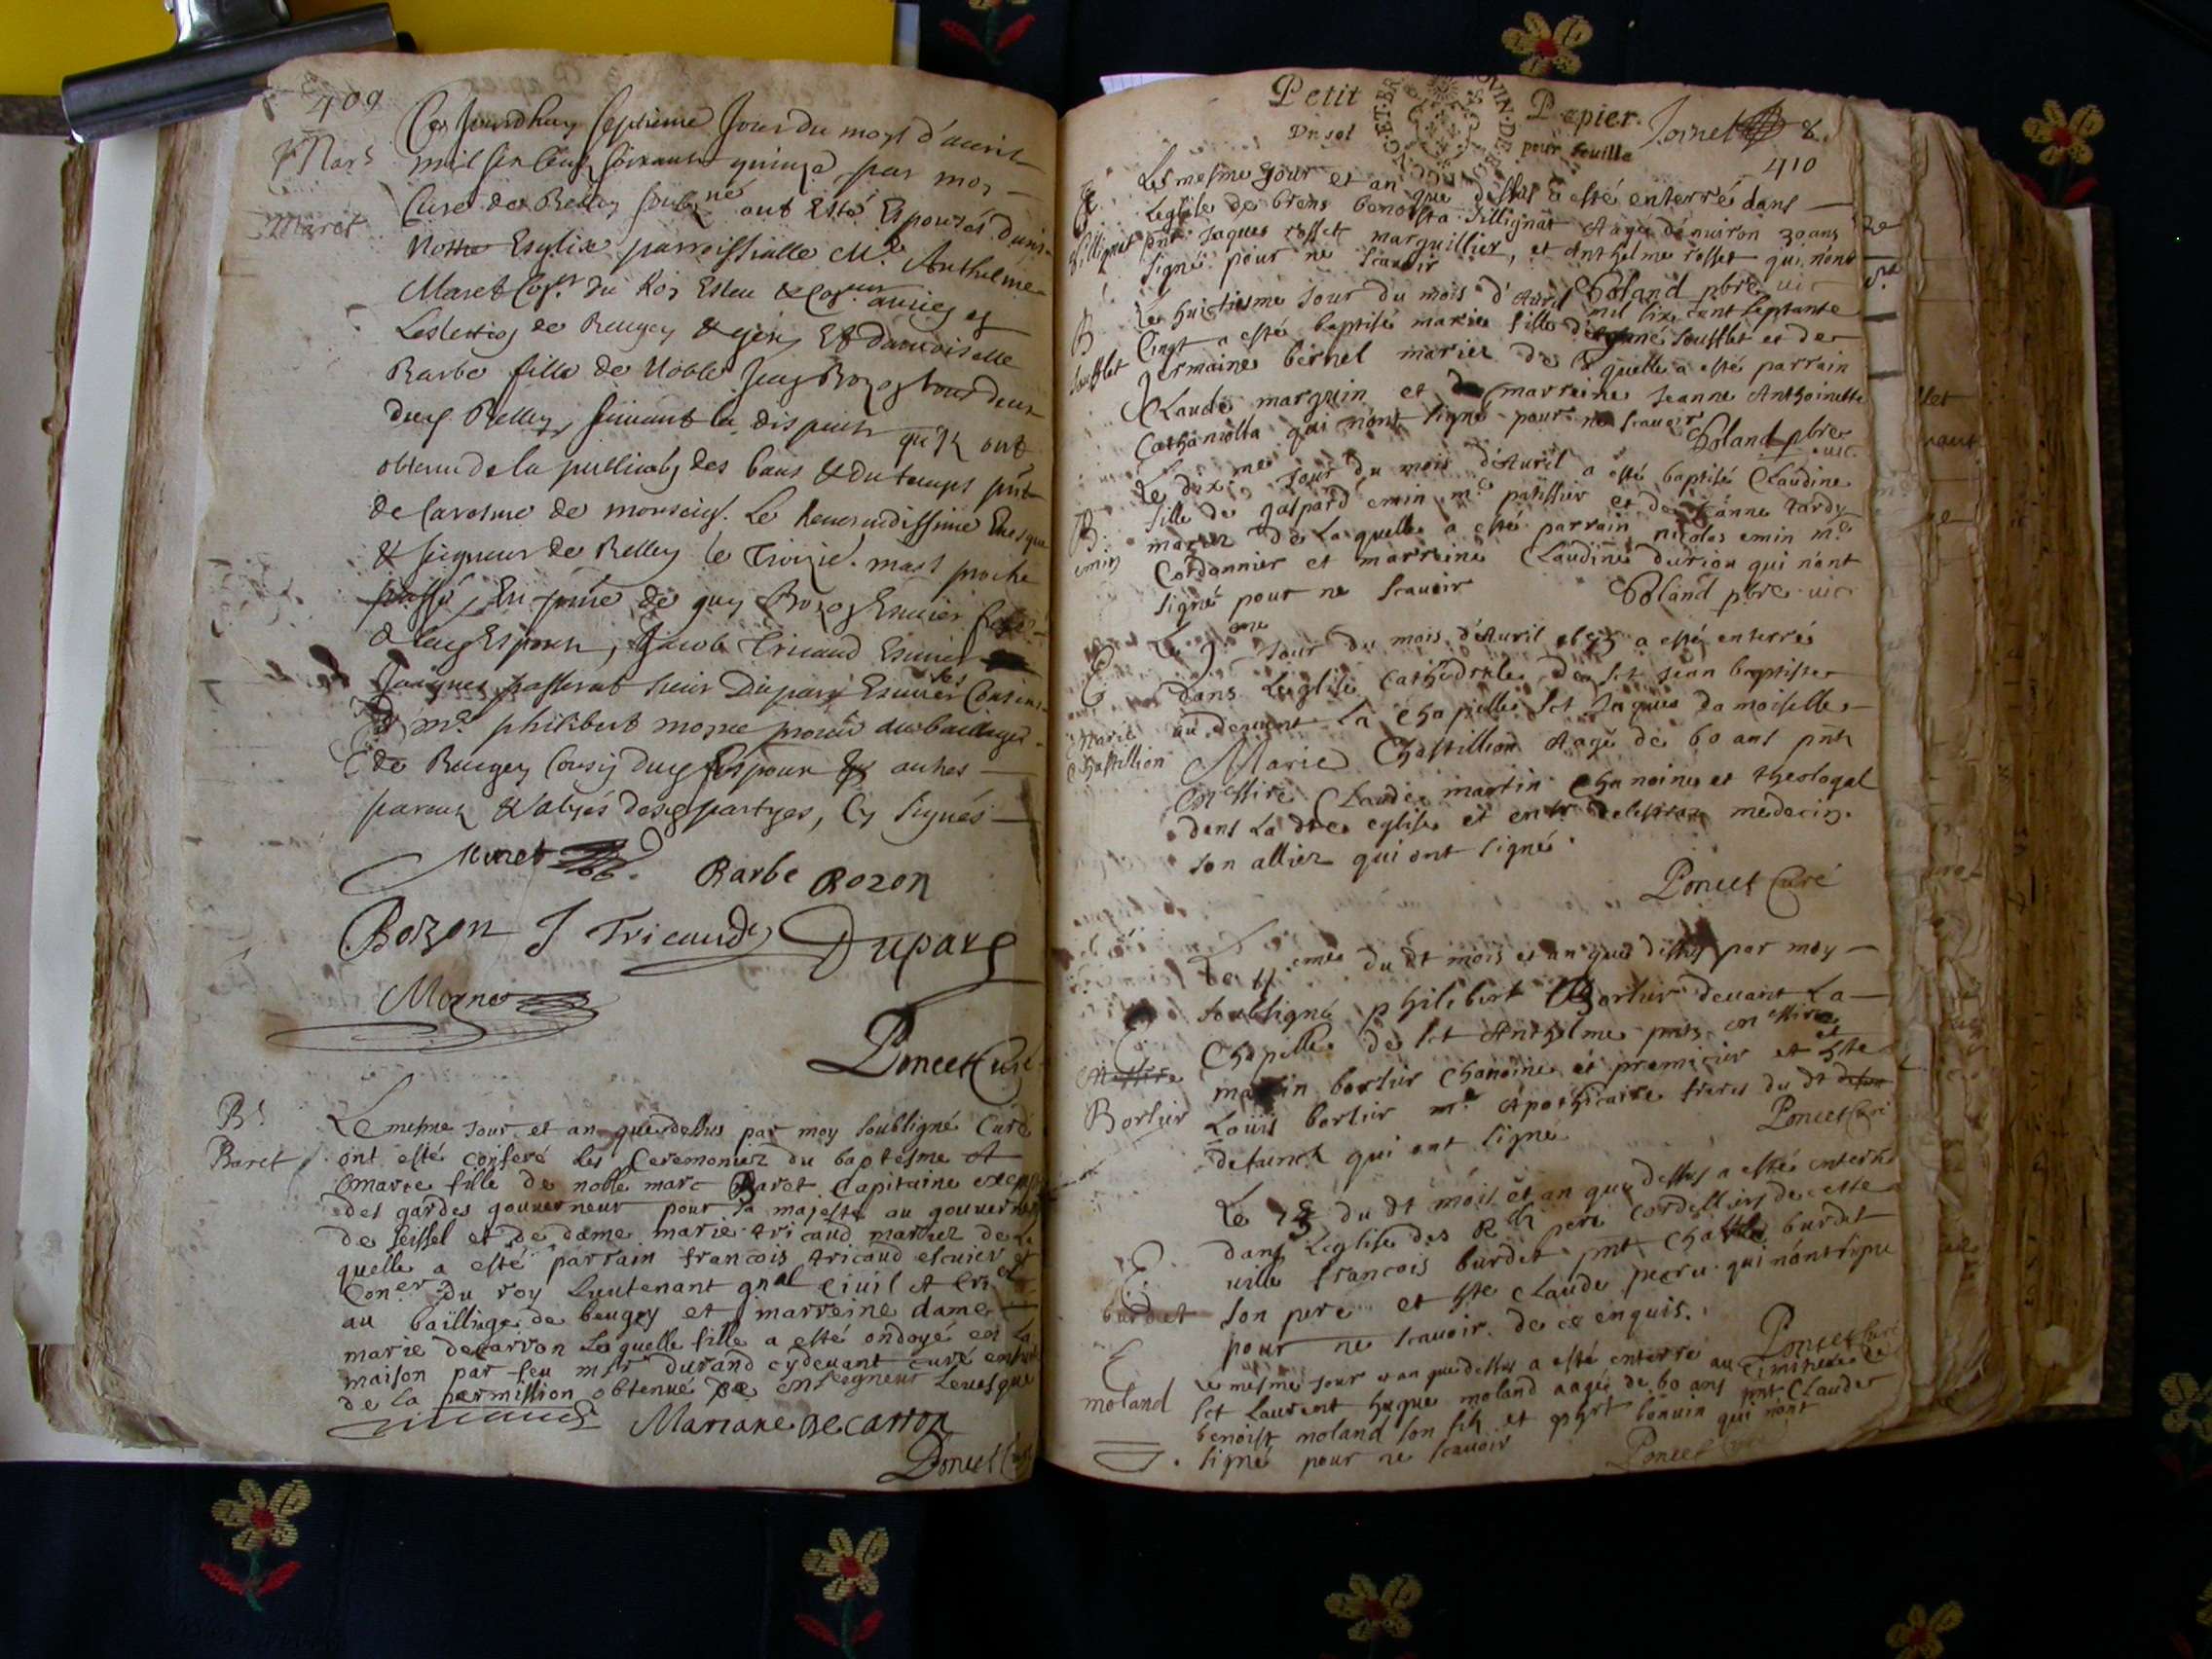 409
Mars
Maret
Ce Jourdhuy septieme Jour du moys d'auril
mil six Cens soixante quinze par moy
Curé de Belley soubné ont Esté Espousés dans
Nostre Esglise parroissialle Me Anthelme
Maret Coner du Roy Esleu &
Eslection de Beugey & gex Et damoiselle
Barbe fille de Noble Bozon tous deux
dud Belley, suiuant la dispence qu'ils ont
obtenu de la publicaon des bans & du temps pnt
de Caresme de monseigr. Le Reuerendissime Euesque
& seigneur de Belley le Troizie. mars proche
passé, En pnce de guy Bozon Escuier
Jacob Tricaud Escuier
Jacques passerat sieur Duparc Escuier Cousins
& me philibert morne procur au bailliage
de Beugey Cousin dud Espoux & autres
parens & alyés desd partyes, Cy signés
Maret Barbe Bozon
Bozon J Tricaud Duparc
Morne
Poncet Curé
Bs
Baret
Le mesme Jour et an que dessus par moy soubsigné Curé
ont esté conferé les Ceremonies du baptesme A
marie fille de noble marc Baret Capitaine exempt
des gardes gouuerneur pour sa majesté au gouuernement
de seissel et de dame marie tricaud mariez de la
quelle a esté parrain francois tricaud escuier et
Coner du roy Lieutenant gnal Ciuil et criel
au bailliage de beugey et marreine dame
marie decarron Laquelle fille a esté ondoyé en La
maison par feu msr durand cydeuant curé ensuite
de la permission obtenue de monseigneur Leuesque
Mariane De carron
Poncet Curé
Petit Papier.
Du sol pour feuille
Jornet 8.
410
E
Sillignat
Les mesme Jour et an que dessus a esté enterré dans
Leglise de brens benoista Sillignat Aagée d'enuiron 30 ans
pnt Jaques rosset marguillier, et Anthelme rosset qui n'ont
signé pour ne scauoir
Boland pbre uic
B
soufflet
Le huictiesme Jour du mois d'Auril mil six cent septante
Cinq a esté baptisé marie fille d'estiené soufflet et de
germaine bernel mariez de laquelle a esté parrain
Claude marguin et marreine Jeanne Anthoinette
Cathaniolla qui n'ont signé pour ne scauoir
Boland pbre uic
B
emin
Le dixme Jour du mois d'Auril a esté baptisé Claudine
fille de gaspard emin me patissier et de Jeanne tardy
mariez de Laquelle a esté parrain nicolas emin me
Cordonnier et marreine Claudine durion qui n'ont
signé pour ne scauoir
Boland pbre uic
E
Marie
Chastillion
Le 9eme Jour du mois d'Auril 1675 a esté enterrée
dans Leglise Cathedrale de sct Jean baptiste
au deuant La Chapelle sct Jaques damoiselle
Marie Chastillion Aagé de 60 ans pnts
messire Claude martin Chanoine et theologal
dans La dte eglise et medecin
son alliez qui ont signé
Poncet Curé
E
Messire
Bortier
Le 11eme du dt mois et an que dessus par moy
soubsigné philibert Bortier deuant La
Chapelle de sct Anthelme pnts messire
martin bortier Chanoine et premicier et hte
Louis bortier me Apothicaire freres du dt
defunct qui ont signé
Poncet Curé
E
burdet
Le 13 du dt mois et an que dessus a esté enterré
dans Leglise des Rds pere Cordelliers de cette
uille francois burdet pnt Charle burdet
son pere et hte Claude peceu qui n'ont signe
pour ne scauoir de ce enquis.
Poncet Curé
E
moland
Le mesme Jour et an que dessus a esté enterré au Cimitiere de
sct Laurent hugue moland aagée de 60 ans pnt Claude
benoist moland son fils et phrt bonuin qui n'ont
signé pour ne scauoir
Poncet Curé